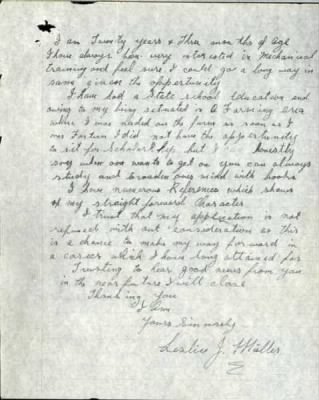 I am Twenty years & Three months of age
I have always been very interested in Mechanical
training and feel sure I could go a long way in
same given the opportunity
I have had a State school Education and
owing to my being situated in a Farming area
where I was needed on the farm as soon as I
was Forteen I did not have the opportunity
to sit for Scholarship but I Honestly
say when one wants to get on you can always
study and broaden ones mind with books
I have numerous References which shows
of my straight forward Character
I trust that my application is not
refused with out consideration as this
is a chance to make my way forward in
a career which I have long attained for
Trusting to hear good news from you
in the near future I will close
Thanking you
I am
Yours Sincerely
Leslie J.